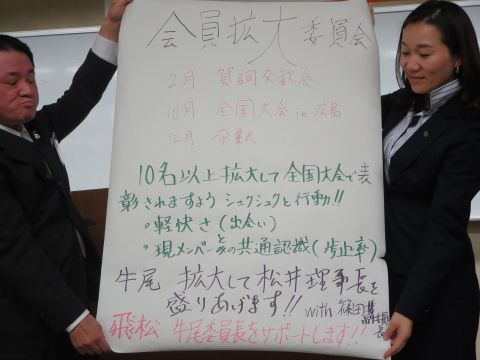 会員拡大委員会
2月 賀詞交歓会
10月 全国大会 in 広島
12月 卒業式
10名以上拡大して全国大会で表
彰されますよう シュクシュクと行動!!
・軽快さ(出会い)
・現メンバーとの共通認識(歩止率)
牛尾 拡大して松井理事長を
盛りあげます!! with 篠田副委員長
飛松 牛尾委員長をサポートします!!